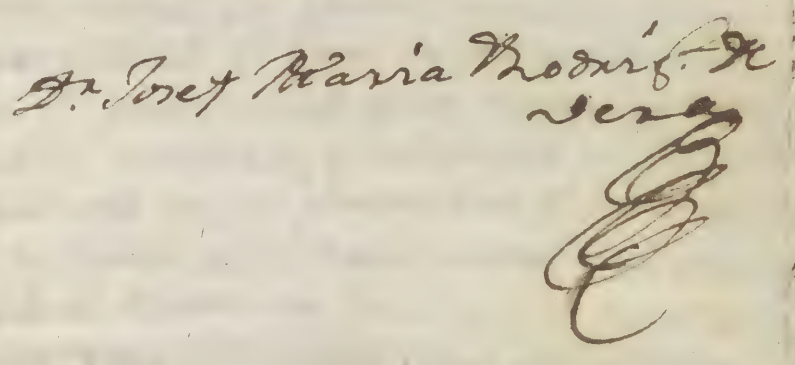 Dn. Josef Maria Rodrig.z de
Vera